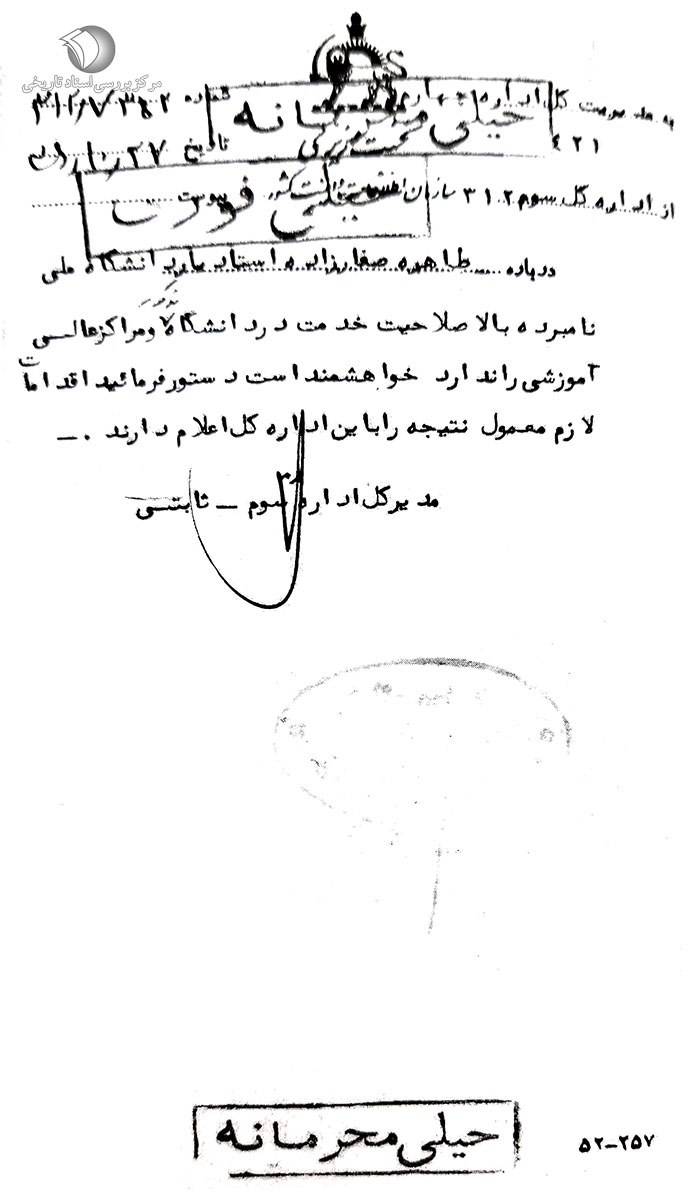 مرکز بررسی اسناد تاریخی
به مدیریت کل اداره چهارم
۴۲۱
نخست وزیری
خیلی محرمانه
شماره
تاریخ
از اداره کل سوم ۳۱۲ سازمان اطلاعات و امنیت کشور پیوست
خیلی فوری
درباره طاهره صفارزاده استادیار دانشگاه ملی
نامبرده بالا صلاحیت خدمت در دانشگاه مذکور ومراکزعالی
آموزشی راندارد خواهشمند است دستورفرمائید اقدامات
لازم معمول نتیجه رابا ین اداره کل اعلام دارند .ـ
مدیرکل اداره سوم ـ ثابتی
خیلی محرمانه
۵۲-۲۵۷